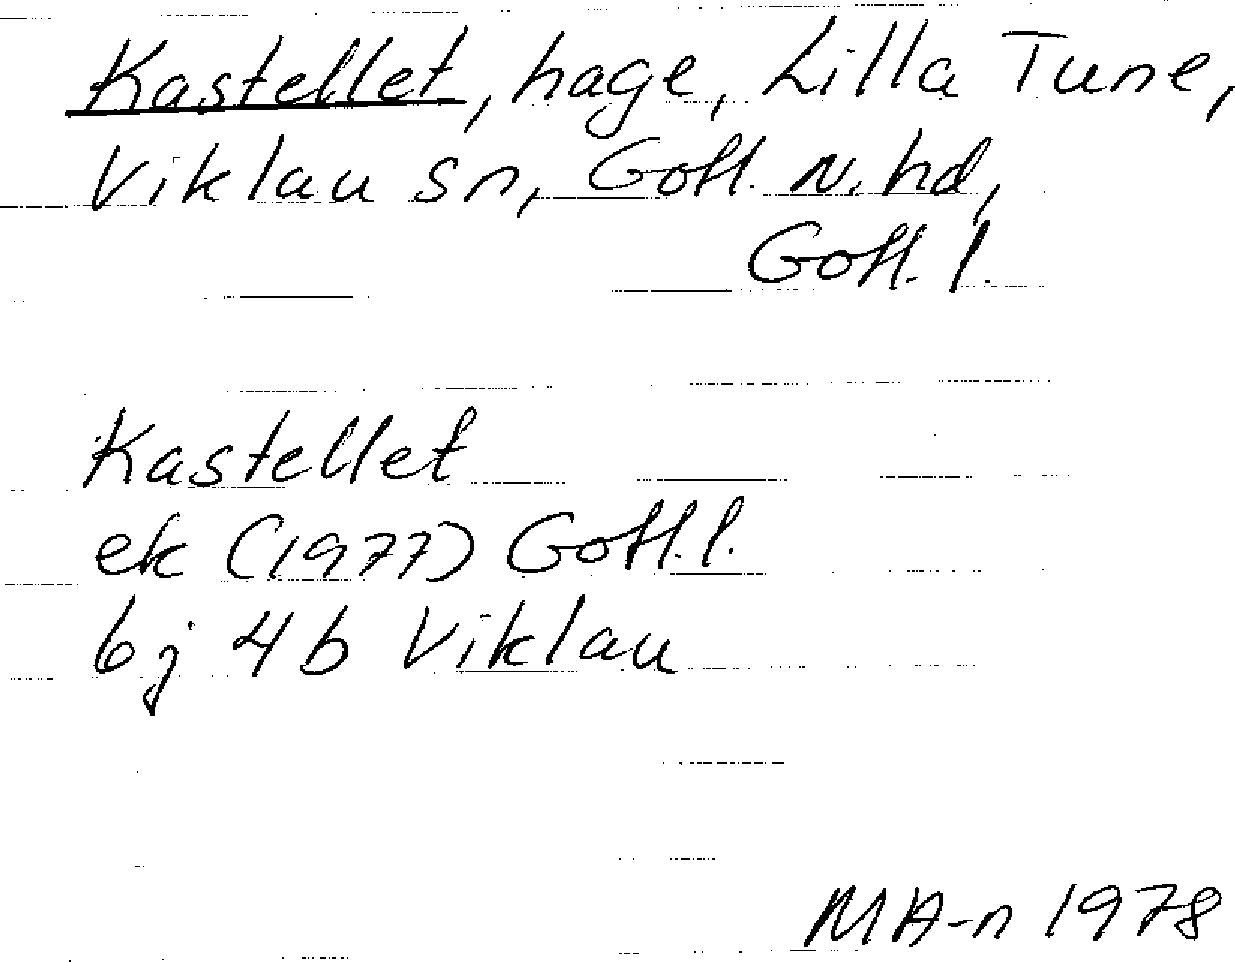 Kastellet, hage, Lilla Tune,
Viklau sn, Gotl. N. hd,
Gotl. l.
Kastellet
ek (1977) Gotl. l.
6j 4b Viklau
MA-n 1978